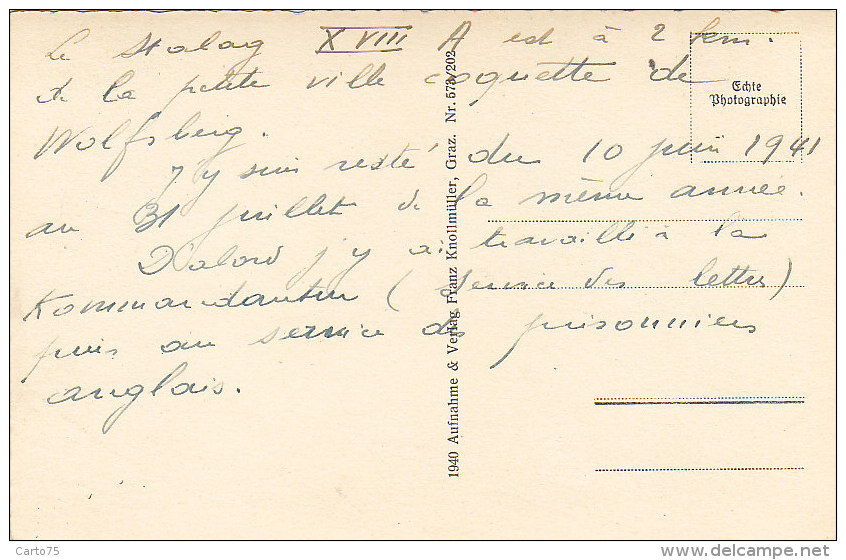 Le Stalag XVIII A est à 2 km.
de la petite ville coquette de
Wolfsberg.
j'y suis resté du 10 juin 1941
au 31 juillet de la même année.
D'abord j'y ai travaillé à la
Kommandantur (service des lettres)
puis au service des prisonniers
anglais.
Echte
Photographie
1940 Aufnahme & Verlag Franz Knollmüller, Graz. Nr. 573/202
Carto75
delcampe.net